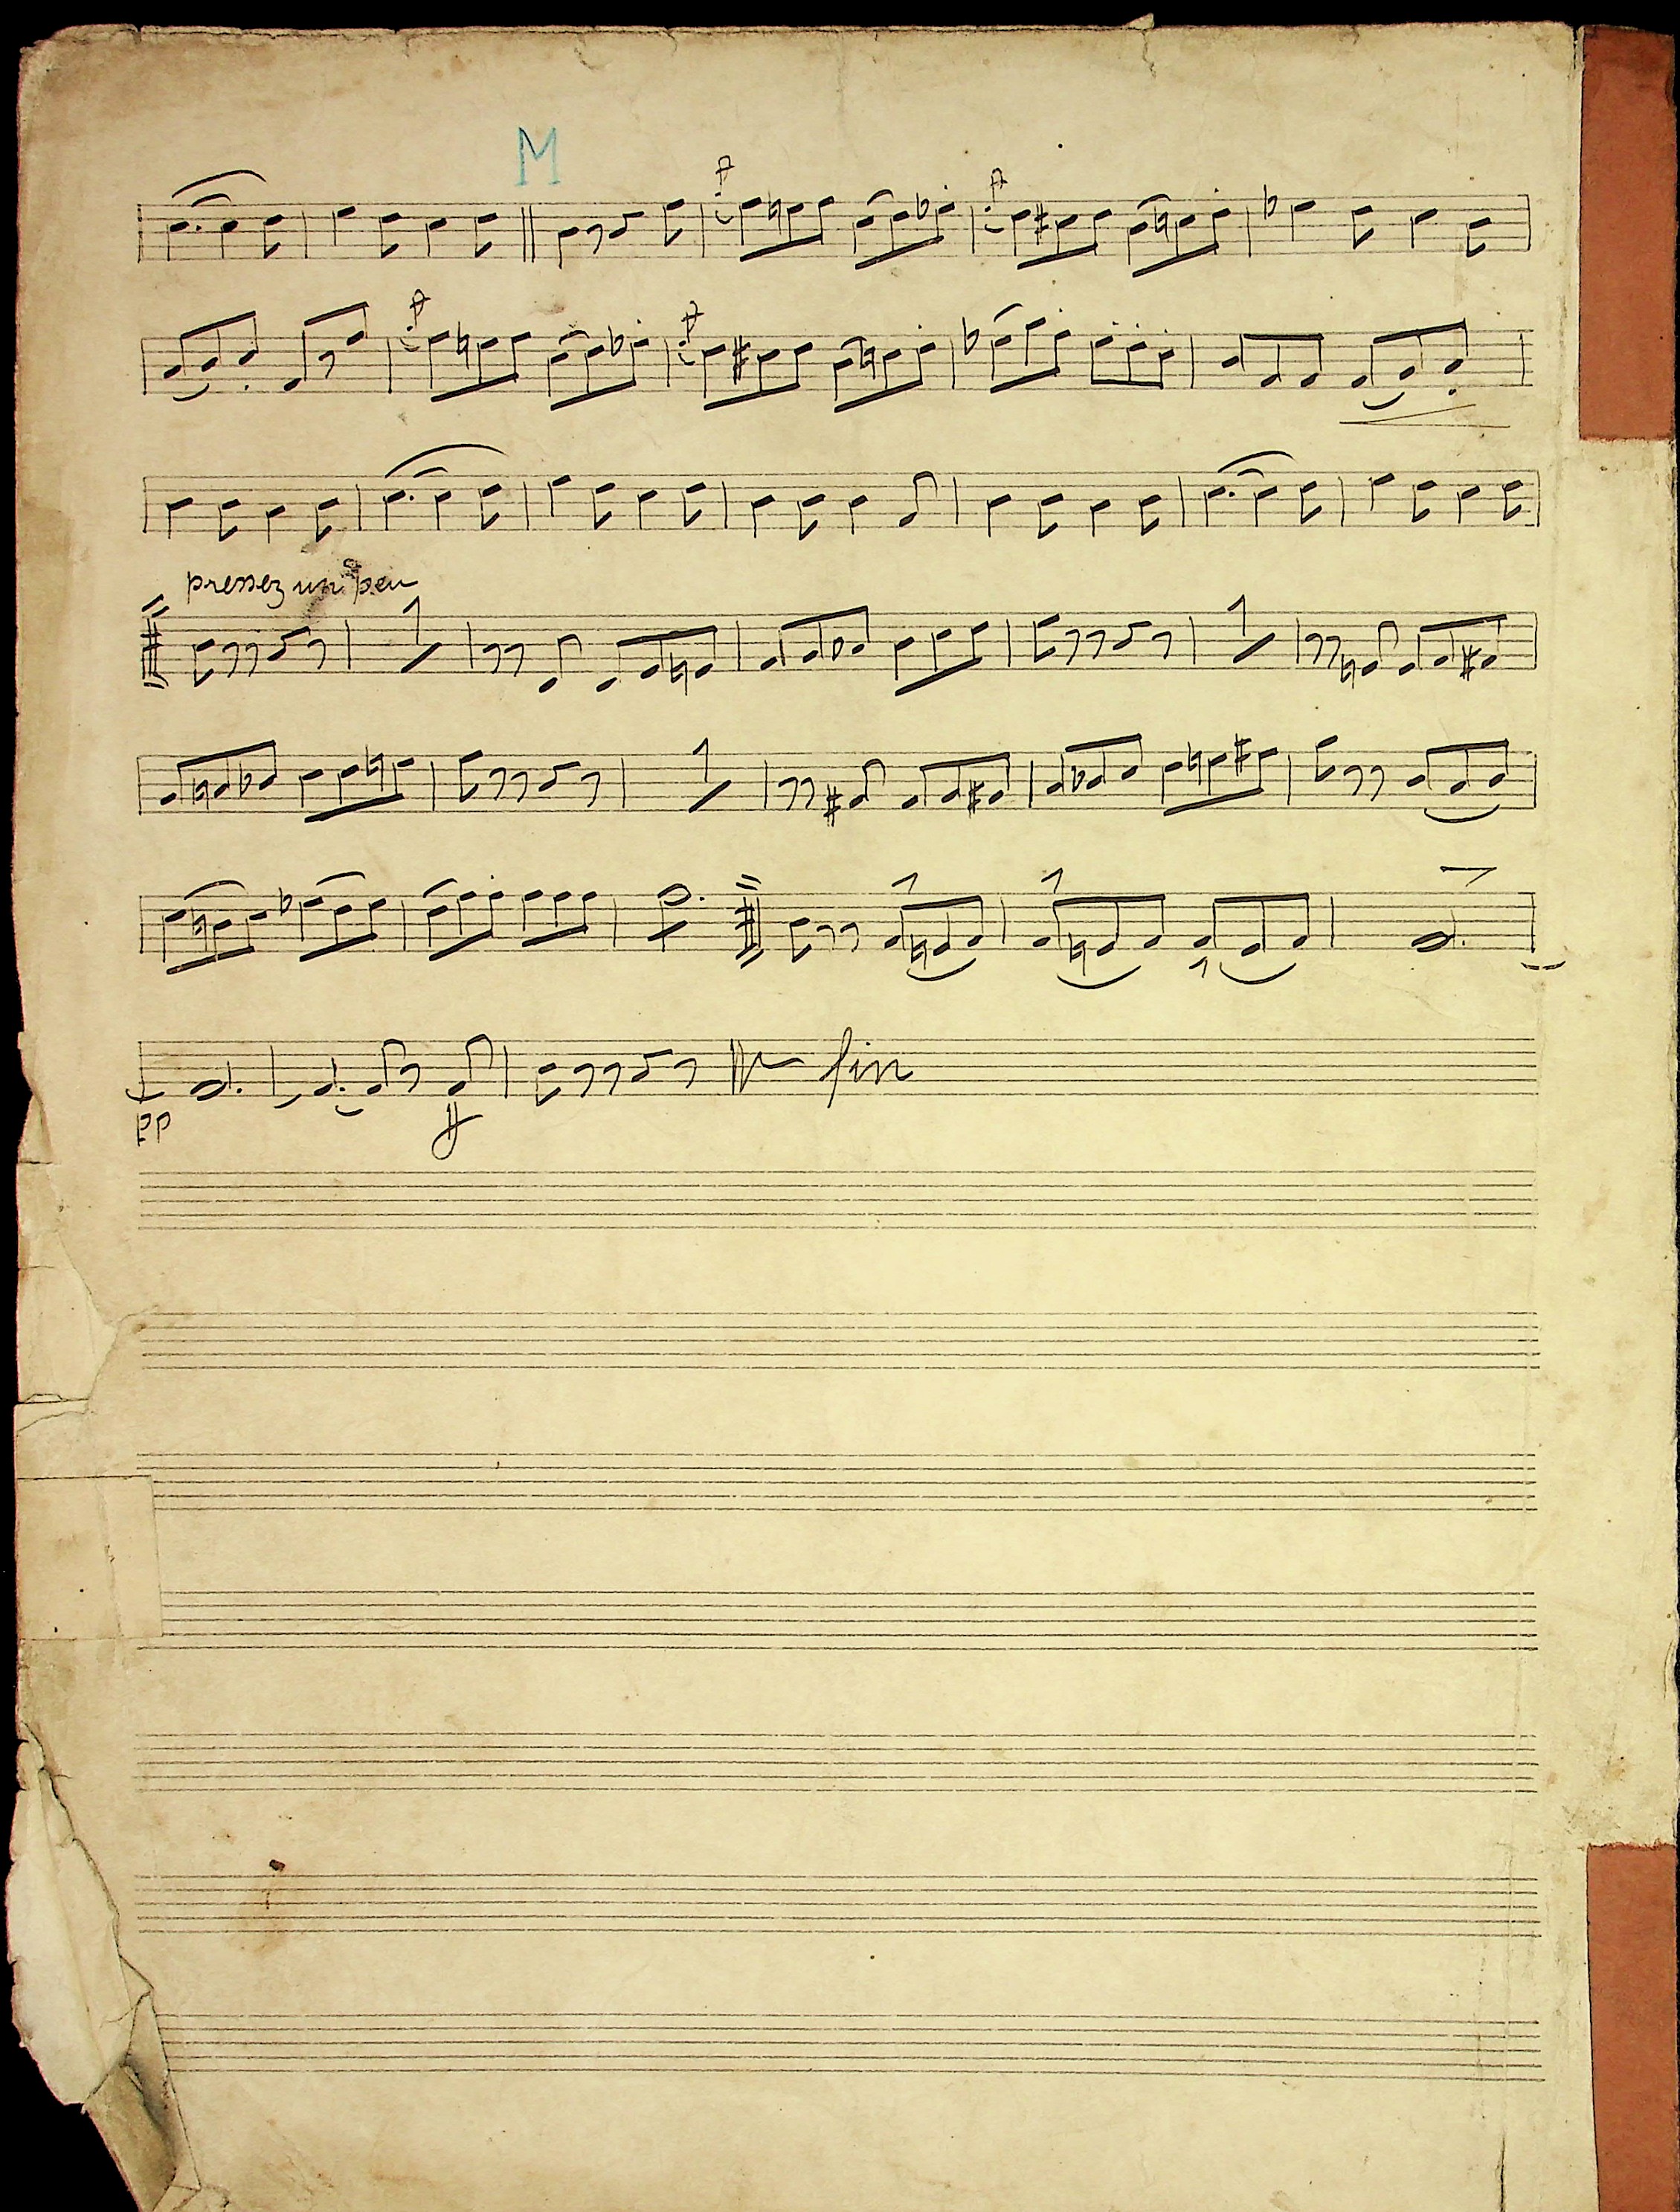 M
pressez un peu
pp
ff fin